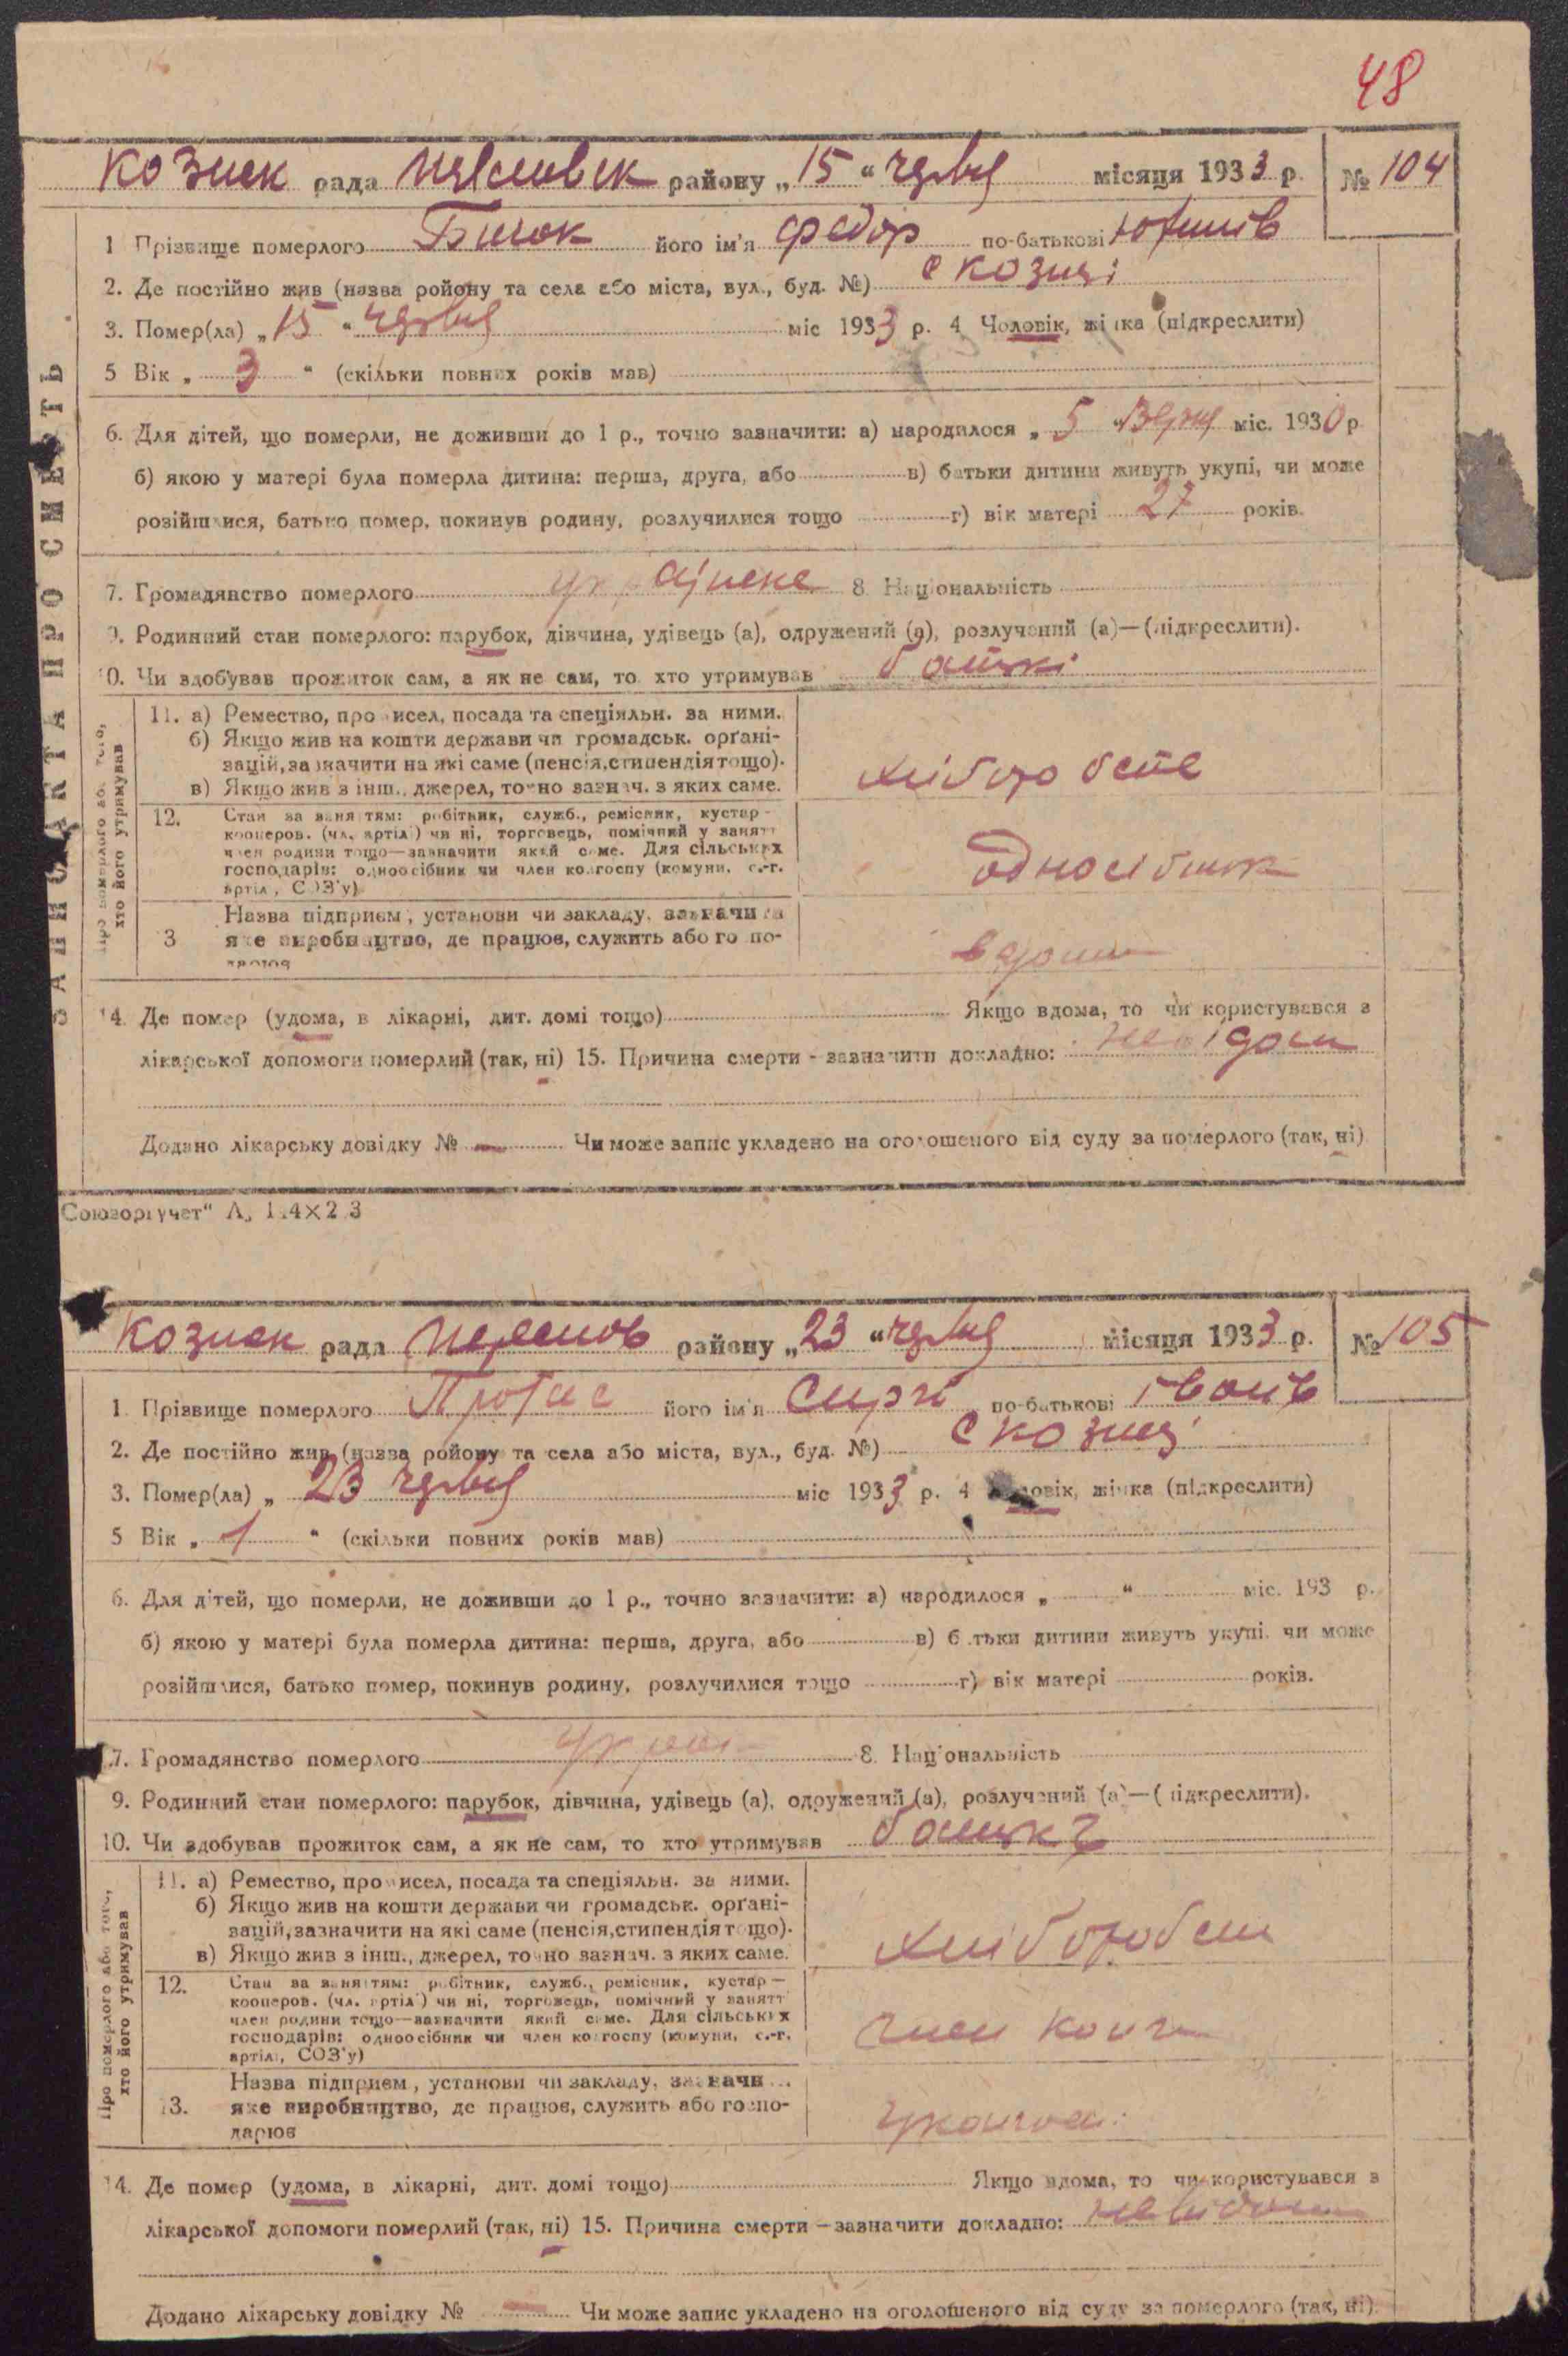 48
Козиек рада району „15“ червця місяця 1933 р. № 104
1 Прізвище померлого Бичок його ім'я Федор по-батькові
2. Де постійно жив (назва ройону та села або міста, вул., буд. №) с Козиці
3. Помер(ла) „15“ червця міс 1933 р. 4 Чоловік, жінка (підкреслити)
5 Вік „3“ (скільки повних років мав)
6. Для дітей, що померли, не доживши до 1 р., точно зазначити: а) народилося „5“ міс. 1930 р
б) якою у матері була померла дитина: перша, друга, або в) батьки дитини живуть укупі, чи може
розійшлися, батько помер, покинув родину, розлучилися тощо г) вік матері 27 років.
7. Громадянство померлого 8. Національність
9. Родинний стан померлого: парубок, дівчина, удівець (а), одружений (а), розлучений (а)—(підкреслити).
10. Чи здобував прожиток сам, а як не сам, то хто утримував батькі
ЗАПИС АКТА ПРО СМЕРТЬ
Про померлого або того,
хто його утримував
11. а) Ремество, промисел, посада та спеціяльн. за ними.
б) Якщо жив на кошти держави чи громадськ. орґані-
зацій, зазначити на які саме (пенсія, стипендія тощо).
в) Якщо жив з інш., джерел, точно зазнач. з яких саме.
12. Стан за заняттям: робітник, служб., ремісник, кустар—
кооперов. (чл. артілі) чи ні, торговець, помічний у занятт
член родини тощо—зазначити який саме. Для сільських
господарів: одноосібник чи член колгоспу (комуни, с.-г.
артіл., СОЗ'у)
односібник
Назва підприєм, установи чи закладу, зазначи
3 яке виробництво, де працює, служить або го по-
14. Де помер (удома, в лікарні, дит. домі тощо) Якщо вдома, то чи користувався з
лікарської допомоги померлий (так, ні) 15. Причина смерти - зазначити докладно: невідом
Додано лікарську довідку № — Чи може запис укладено на оголошеного від суду за померлого (так, ні)
Союзоргучет“
Козиек рада району „23“ червця місяця 1933 р. № 105
1 Прізвище померлого Протас його ім'я Сиргі по-батькові Іванів
2. Де постійно жив (назва ройону та села або міста, вул., буд. №) с Козиці
3. Помер(ла) „23 червця міс 1933 р. 4 Чоловік, жінка (підкреслити)
5 Вік „1“ (скільки повних років мав)
6. Для дітей, що померли, не доживши до 1 р., точно зазначити: а) народилося „ “ міс. 193 р.
б) якою у матері була померла дитина: перша, друга, або в) батьки дитини живуть укупі, чи може
розійшлися, батько помер, покинув родину, розлучилися тощо г) вік матері років.
7. Громадянство померлого 8. Національність
9. Родинний стан померлого: парубок, дівчина, удівець (а), одружений (а), розлучений (а)—(підкреслити).
10. Чи здобував прожиток сам, а як не сам, то хто утримував
Про померлого або того,
хто його утримував
11. а) Ремество, промисел, посада та спеціяльн. за ними.
б) Якщо жив на кошти держави чи громадськ. орґані-
зацій, зазначити на які саме (пенсія, стипендія тощо).
в) Якщо жив з інш., джерел, точно зазнач. з яких саме.
12. Стан за заняттям: робітник, служб., ремісник, кустар—
кооперов. (чл. артілі) чи ні, торговець, помічний у занятт
член родини тощо—зазначити який саме. Для сільських
господарів: одноосібник чи член колгоспу (комуни, с.-г.
артіл., СОЗ'у)
Назва підприєм, установи чи закладу, зазначи
13. яке виробництво, де працює, служить або госпо-
дарює
14. Де помер (удома, в лікарні, дит. домі тощо) Якщо вдома, то чи користувався з
лікарської допомоги померлий (так, ні) 15. Причина смерти — зазначити докладно:
Додано лікарську довідку № — Чи може запис укладено на оголошеного від суду за померлого (так, ні).